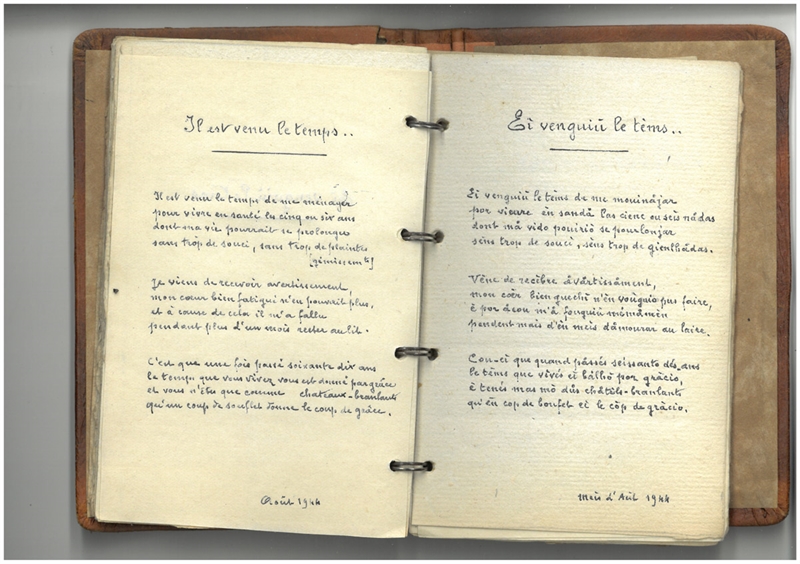 Il est venu le temps..
Il est venu le temps de me ménager
pour vivre en santé les cinq ou six ans
dont ma vie pourrait se prolonger
sans trop de souci, sans trop de plaintes
[gémissemts]
Je viens de recevoir avertissement,
mon cœur bien fatigué n'en pouvait plus,
et à cause de cela il m'a fallu
pendant plus d'un mois rester au lit.
C'est que une fois passé soixante dix ans
le temps que vous vivez vous est donné par grâce
et vous n'êtes que comme chateaux-branlants
qu'un coup de soufflet donne le coup de grâce.
Août 1944
Ei venguiü le tèms..
Ei venguiü le tèms de me mouinâjar
por vioure en sandâ las cienc ou seis nâdas
dont mâ vido pouiriô se pourlonjar
sens trop de souci, sens trop de gienlhâdas.
Vène de recibre âvârtissâment,
mon cœr bien guechi n'en vouguio pus faire,
è por âcou m'â fouguiü
pendent mais d'ün meis dâmourar au laire.
Cou-ei que quand pâssés seissanto dès ans
le tèms que vivès ei bâlhô por grâcio,
è tenès mas mô dûs châtèls-branlants
qu'ün cop de boufet ei le côp de grâcio.
Meis d'Aût 1944